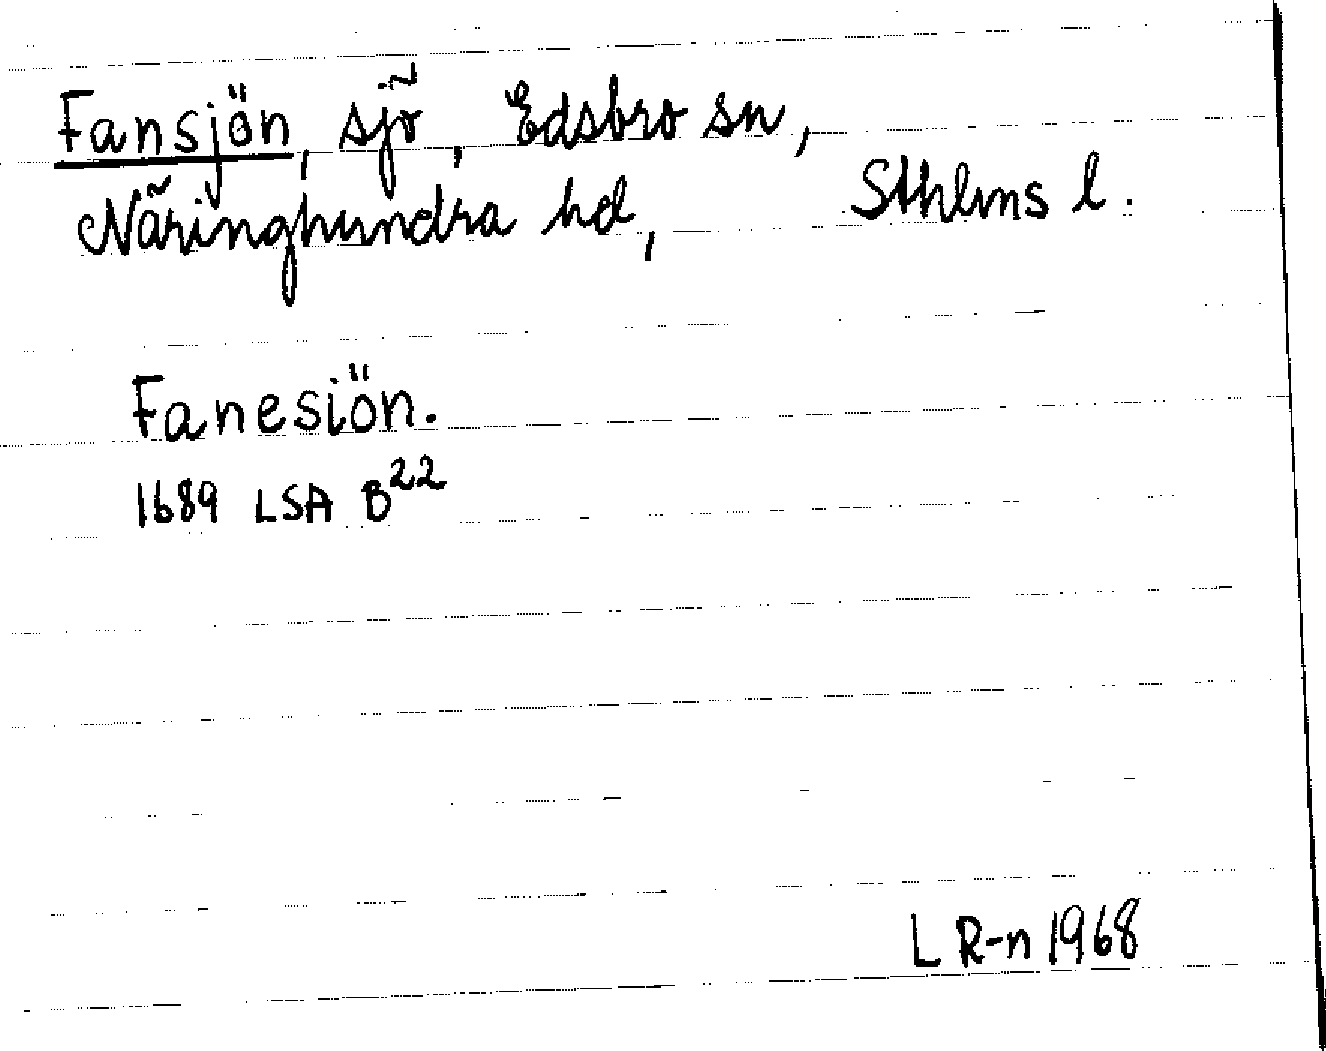 Fansjön, sjö, Edsbro sn,
Näringhundra hd, Sthlms l.
Fanesiön.
1689 LSA B²²
L R-n 1968